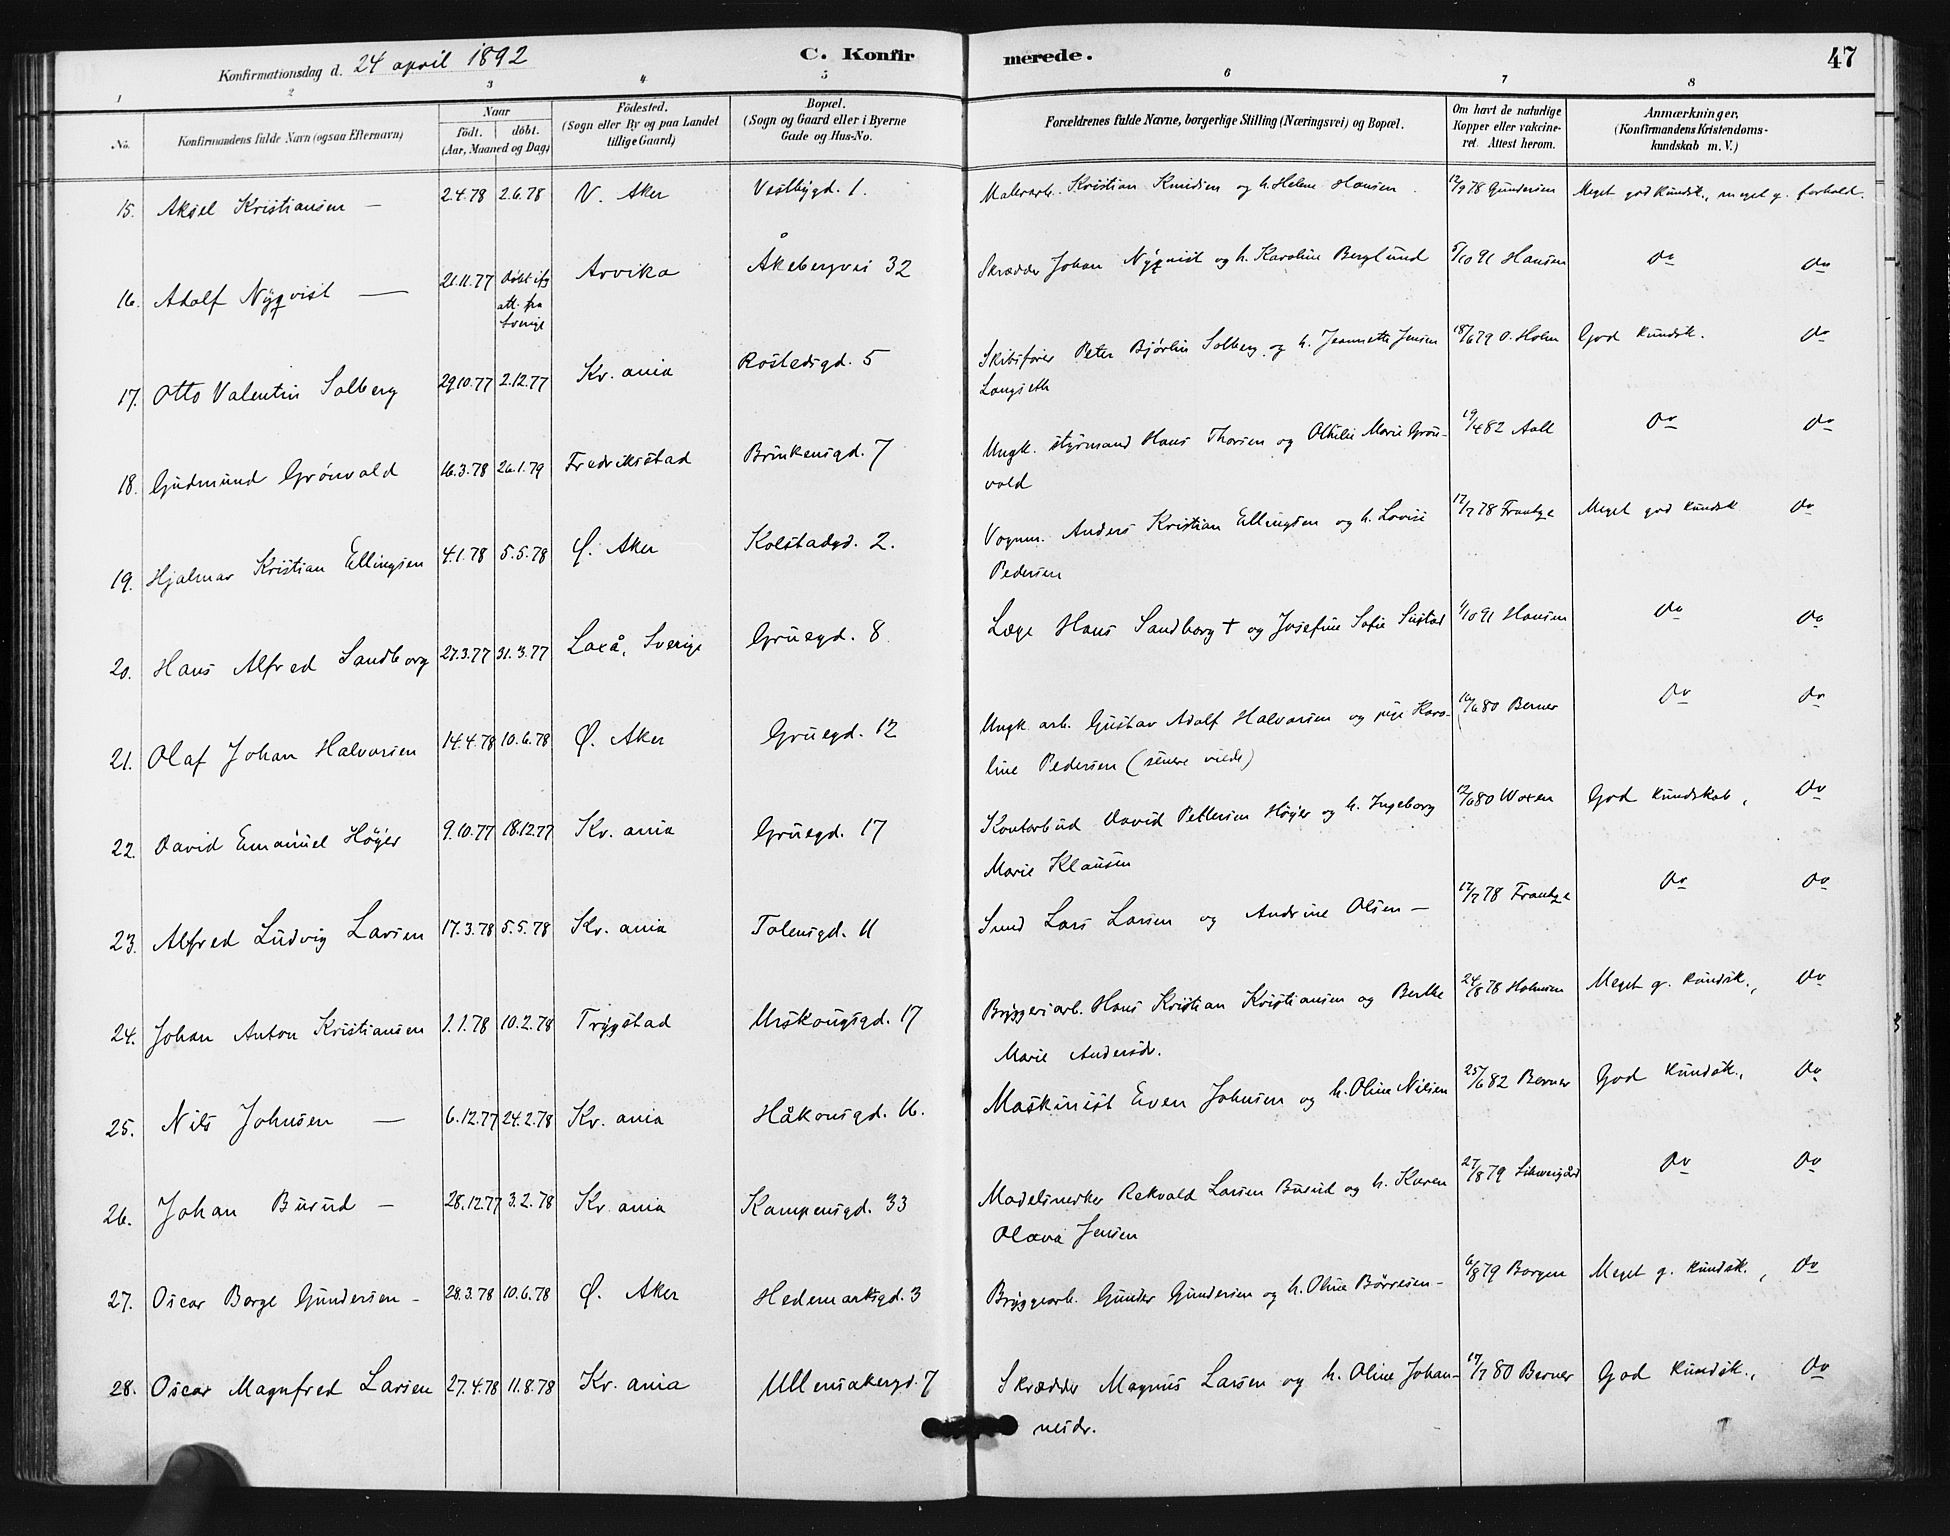 Konfirmationsdag d. 24 april 1892 C. Konfirmerede. 47
1 2 3 4 5 6 7 8
No. Konfirmandens fulde Navn (ogsaa Efternavn) Naar födt. döbt. (Aar, Maaned og Dag) Födested. (Sogn eller By og paa Landet tillige Gaard) Bopæl. (Sogn og Gaard eller i Byerne Gade og Hus-No. Forældrenes fulde Navne, borgerlige Stilling (Næringsvei) og Bopæl. Om havt de naturlige Kopper eller vakcineret. Attest herom. Anmærkninger. (Konfirmandens Kristendomskundskab m. V.)
15. Aksel Kristiansen — 2.4.78 2.6.78 V. Aker Vestbygd. 1. Malerarb. Kristian Knudsen og h. Helene Hansen 12/9 78 Gundersen Meget god kundsk., meget g. forhold.
16. Adolf Nyqvist — 21.11.77 Döbt ifg att. fra Sverige Arvika Åkebergvei 32 Skrædder Johan Nyqvist og h. Karoline Berglund 5/10 91 Hansen do do
17. Otto Valentin Solberg 29.10.77 2.12.77 Kr.ania Rostedsgd. 5 Skibsfører Peter Bjørlin Solberg og h. Jeannette Jensen 18/6 79 O. Holm God kundsk. do
Langseth
18. Gudmund Grönvold 16.3.78 26.1.79 Fredrikstad Brinkensgd. 7 Ungk. styrmand Hans Thorsen og Othilie Marie Grön- 19/4 82 Aall do do
vold
19. Hjalmar Kristian Ellingsen 4.1.78 5.5.78 Ø. Aker Kolstadgd. 2. Vognm. Anders Kristian Ellingsen og h. Lovise 17/7 78 Frantze Meget god kundsk do
Pedersen
20. Hans Alfred Sandborg 27.3.77 31.3.77 Laxå, Sverige Gruegd. 8 Læge Hans Sandborg † og Josefine Sofie 1/10 91 Hansen do do
21. Olaf Johan Halvorsen 14.4.78 10.6.78 Ø. Aker Gruegd. 12 Ungk. arb. Gustav Adolf Halvorsen og pige Karo- 16/6 80 Berner do do
line Pedersen (senere viede)
22. David Emanuel Höyer 9.10.77 18.12.77 Kr.ania Gruegd. 17 Kontorbud David Pettersen Höyer og h. Ingeborg 12/6 80 Woxen God kundskab, do
Marie Klausen
23. Alfred Ludvig Larsen 17.3.78 5.5.78 Kr.ania Tøiensgd. 11 Smed Lars Larsen og Andrine Olsen — 17/7 78 Frantze do do
24. Johan Anton Kristiansen 1.1.78 10.2.78 Trygstad Urskougsgd. 17 Bryggeriarb. Hans Kristian Kristiansen og Berthe 24/8 78 Holmsen Meget g. kundsk., do
Marie Andersdr.
25. Nils Johnsen — 6.12.77 24.2.78 Kr.ania Håkonsgd. 16. Maskinist Even Johnsen og h. Oline Nilsen 25/6 82 Berner God kundsk., do
26. Johan Burud — 28.12.77 3.2.78 Kr.ania Kampensgd. 33 Modelsnedker Rekvald Larsen Burud og h. Karen 27/8 79 Schweigård do do
Olava Jensen
27. Oscar Borge Gundersen — 28.3.78 10.6.78 Ø. Aker Hedemarksgd. 3 Bryggearb. Gunder Gundersen og h. Oline Börresen — 6/8 79 Borgen Meget g. kundsk., do
28. Oscar Magnfred Larsen 27.4.78 11.8.78 Kr.ania Ullensakergd. 7 Skrædder Magnus Larsen og h. Oline Johan- 17/7 80 Berner God kundsk., do
nesdr.